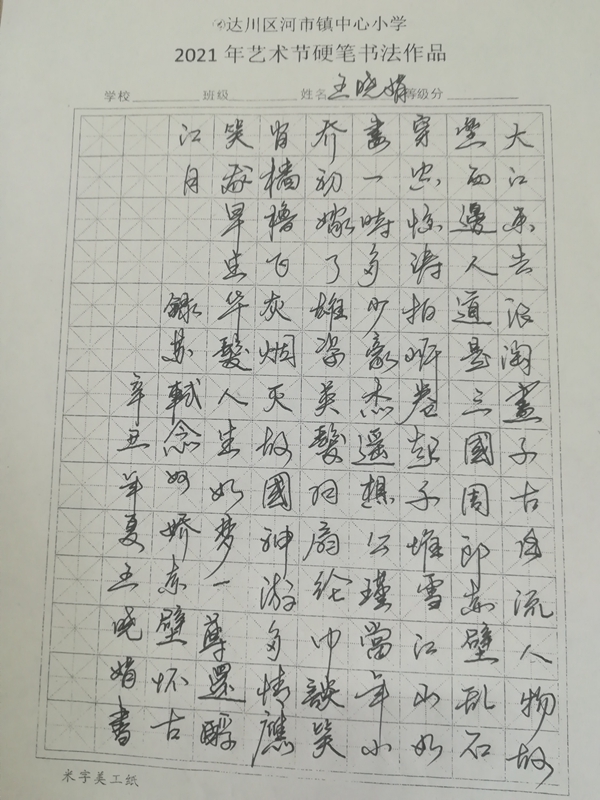 达川区河市镇中心小学
2021年艺术节硬笔书法作品
学校 班级 姓名 王晓娟 等级分
大江东去浪淘盡千古风流人物故
垒西邊人道是三國周郎赤壁乱石
穿空惊涛拍岸卷起千堆雪江山如
畫一時多少豪杰遥想公瑾當年小
乔初嫁了雄姿英發羽扇纶巾談笑
间樯櫓飞灰烟灭故國神游多情應
笑我早生华髮人生如梦一尊還酹
江月 録苏轼念奴娇赤壁怀古
辛丑年夏王晓娟書
米字美工纸